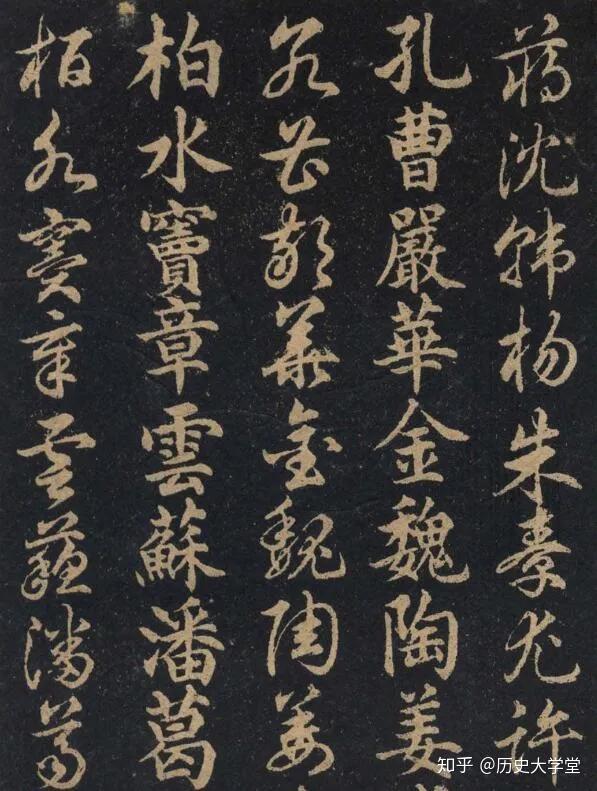 蔣沈韓楊朱秦尤許
孔曹嚴華金魏陶姜
孔曹嚴華金魏陶姜
柏水竇章雲蘇潘葛
柏水竇章雲蘇潘葛
知乎 @历史大学堂